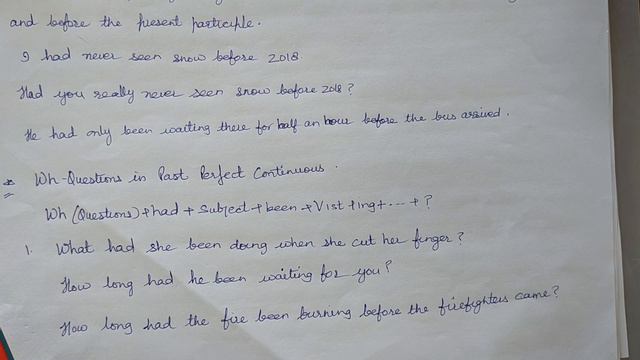 and before the present participle.
I had never seen snow before 2018.
Had you really never seen snow before 2018?
He had only been waiting there for half an hour before the bus arrived.
* Wh-Questions in Past Perfect Continuous.
Wh (Questions) + had + Subject + been + V1st + ing + ... + ?
1. What had she been doing when she cut her finger?
How long had he been waiting for you?
How long had the fire been burning before the firefighters came?